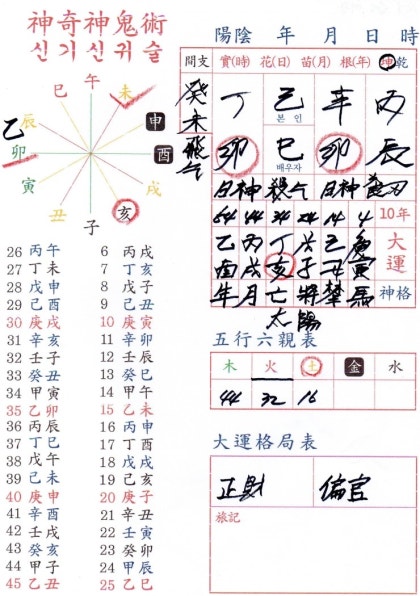 神奇神鬼術
신기신귀술
陽陰 年 月 日 時
間支 實(時) 花(日) 苗(月) 根(年) 坤乾
癸未
丁 己 辛 丙
본 인
卯 巳 卯 辰
배우자
10年
大運
神格
34 24 14 4
乙 丙 丁 戊 己 庚
酉 戌 亥 子 丑 寅
年 月 亡 將 攀 馬
太陽
午
巳 未
辰 申
乙
卯 酉
寅 戌
丑 亥
子
26 丙午 6 丙戌
27 丁未 7 丁亥
28 戊申 8 戊子
29 己酉 9 己丑
30 庚戌 10 庚寅
31 辛亥 11 辛卯
32 壬子 12 壬辰
33 癸丑 13 癸巳
34 甲寅 14 甲午
35 乙卯 15 乙未
36 丙辰 16 丙申
37 丁巳 17 丁酉
38 戊午 18 戊戌
39 己未 19 己亥
40 庚申 20 庚子
41 辛酉 21 辛丑
42 壬戌 22 壬寅
43 癸亥 23 癸卯
44 甲子 24 甲辰
45 乙丑 25 乙巳
五行六親表
木 火 土 金 水
44 32 16
大運格局表
正財 偏官
旅記